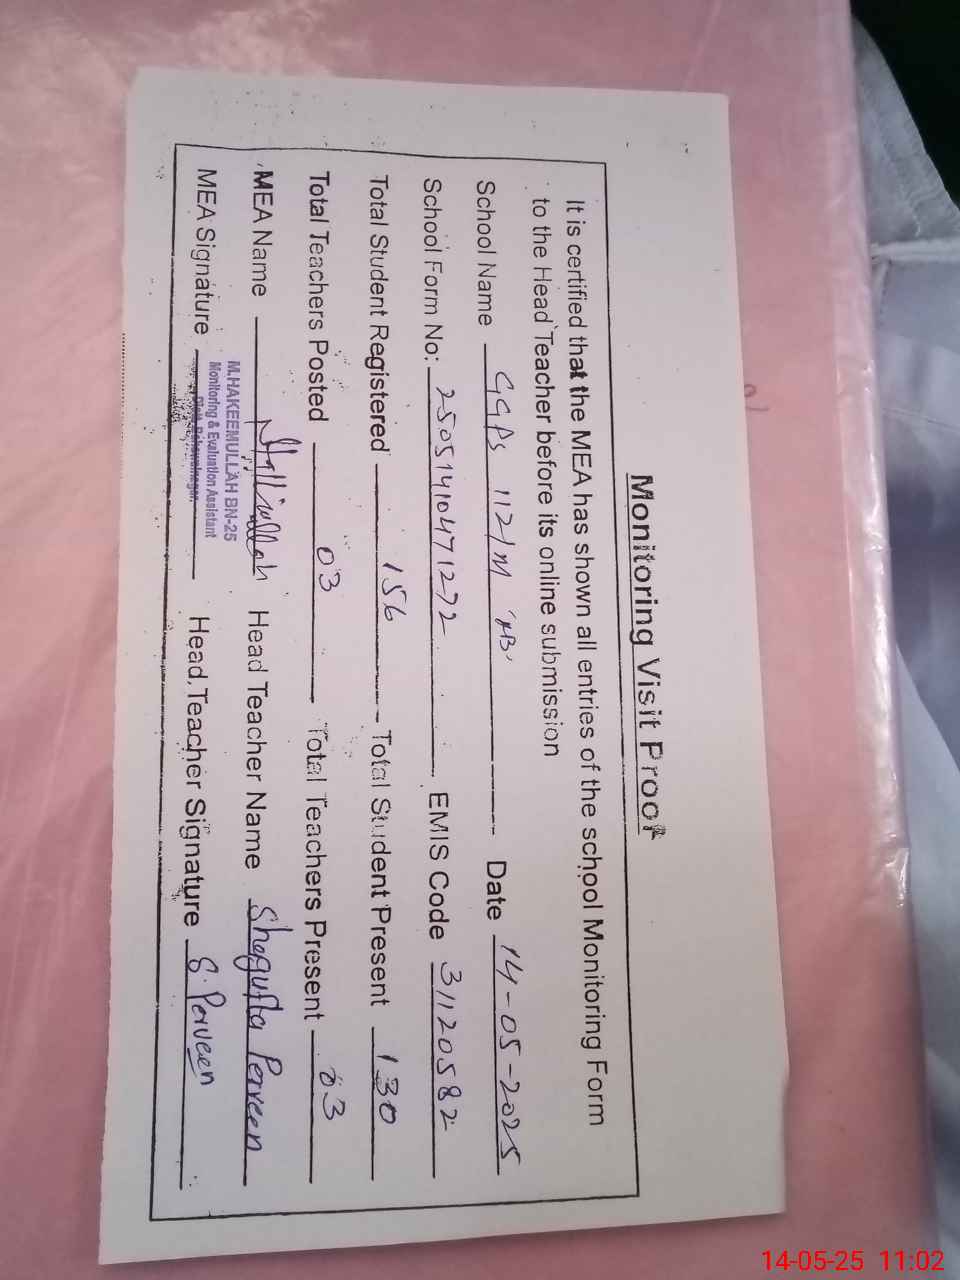 Monitoring Visit Proof
It is certified that the MEA has shown all entries of the school Monitoring Form
to the Head Teacher before its online submission
School Name GGPS 112/M 'HB' Date 14-05-2025
School Form No: 25051410471272 EMIS Code 31120582
Total Student Registered 156 Total Student Present 130
Total Teachers Posted 03 Total Teachers Present 03
MEA Name Head Teacher Name Shagufta Perveen
M.HAKEEMULLAH BN-25
Monitoring & Evaluation Assistant
Distt. Bahawalnagar.
MEA Signature Head Teacher Signature S. Perveen
14-05-25 11:02